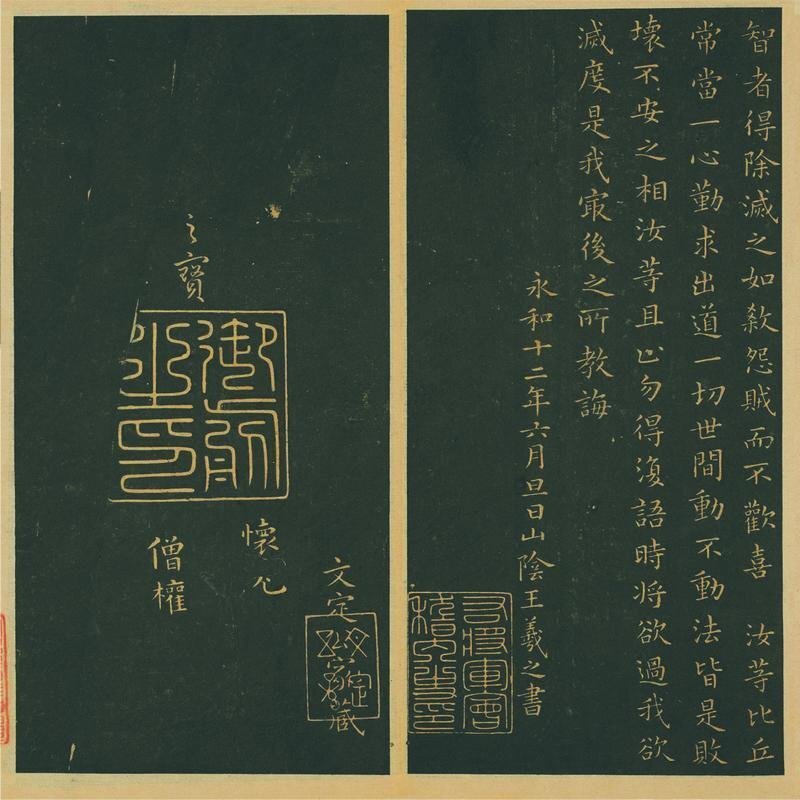 智者得除滅之如煞怨賊而不歡喜　汝等比丘
常當一心勤求出道一切世間動不動法皆是敗
壞不安之相汝等且止勿得復語時將欲過我欲
滅度是我㝡後之所教誨
永和十二年六月旦日山陰王羲之書
右將軍會
稽內史印
文定
懷允
僧權
之寶
御前
之印
藏